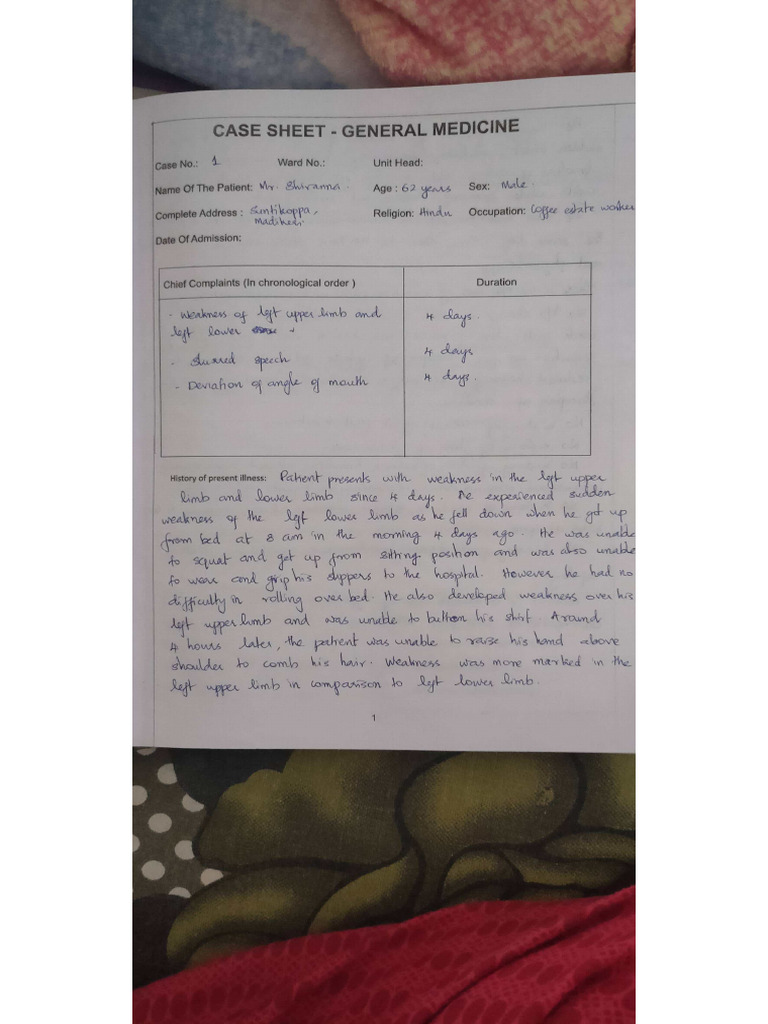 CASE SHEET - GENERAL MEDICINE
Case No.: 1 Ward No.: Unit Head:
Name Of The Patient: Mr. Shivanna. Age : 62 years Sex: Male.
Complete Address : Suntikoppa, Religion: Hindu Occupation: Coffee estate worker
Madikeri
Date Of Admission:
Chief Complaints (In chronological order ) Duration
- Weakness of left upper limb and 4 days.
left lower
- Slurred speech 4 days
- Deviation of angle of mouth 4 days.
History of present illness: Patient presents with weakness in the left upper
limb and lower limb since 4 days. He experienced sudden
weakness of the left lower limb as he fell down when he got up
from bed at 8 am in the morning 4 days ago. He was unable
to squat and get up from sitting position and was also unable
to wear and grip his slippers to the hospital. However he had no
difficulty in rolling over bed. He also developed weakness over his
left upper limb and was unable to button his shirt. Around
4 hours later, the patient was unable to raise his hand above
shoulder to comb his hair. Weakness was more marked in the
left upper limb in comparison to left lower limb.
1